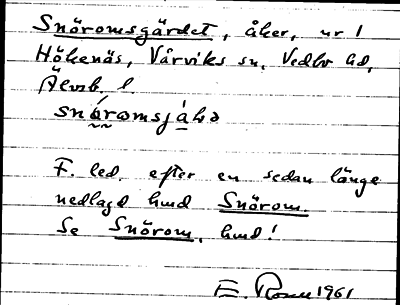 Snöromsgärdet, åker, nr 1
Hökenäs, Vårviks sn. Vedbo hd,
Älvsb. l
snǿromsjáḷə
F. led. efter en sedan länge
nedlagd hmd Snörom.
Se Snörom, hmd!
E. 1961